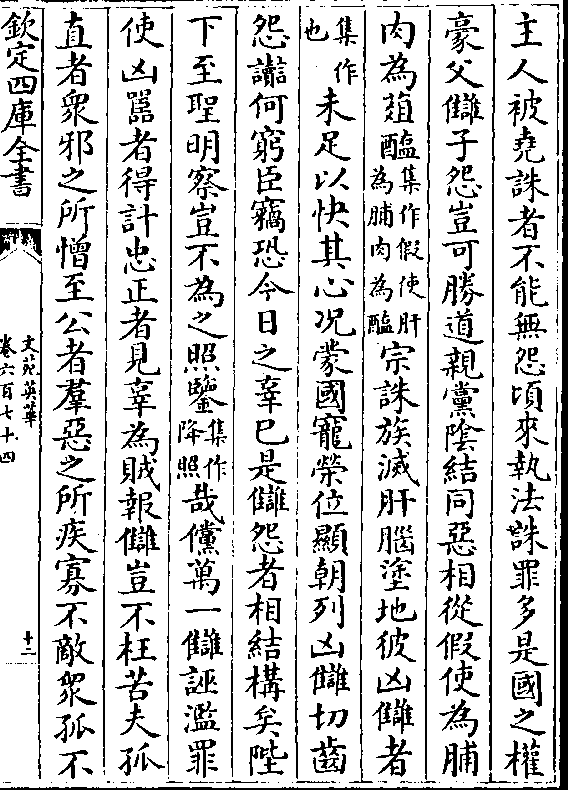 主人被堯誅者不能無怨頃來執法誅罪多是國之權
豪父讎子怨豈可勝道親黨陰結同惡相從假使為脯
肉為葅醢集作假使肝為脯肉為醢宗誅族滅肝腦塗地彼凶讎者
集作也未足以快其心况蒙國寵榮位顯朝列凶讎切齒
怨讟何窮臣竊恐今日之辜已是讎怨者相結構矣陛
下至聖明察豈不為之照鑒集作降照哉儻萬一讎誣濫罪
使凶嚚者得計忠正者見辜為賊報讎豈不枉苦夫孤
直者衆邪之所憎至公者羣惡之所疾寡不敵衆孤不
欽定四庫全書
文苑英華
卷六百七十四
十二